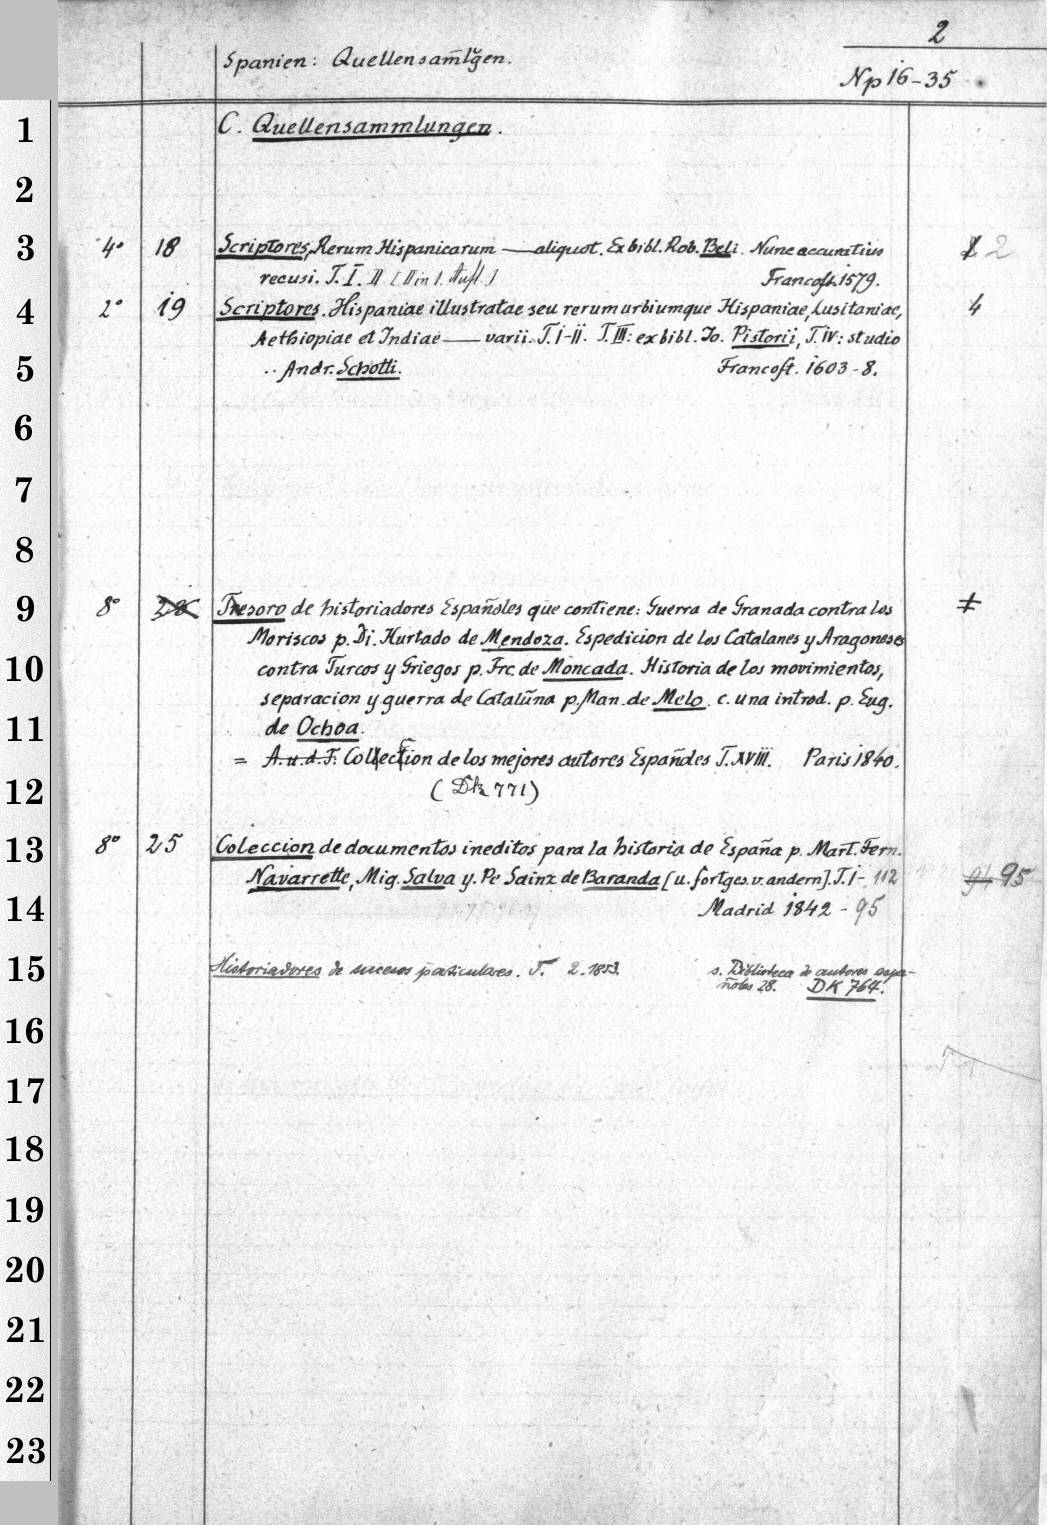 2
Spanien: Quellensamlgen.
Np 16-35
1 C. Quellensammlungen.
2
3 4° 18 Scriptores, Rerum Hispanicarum — aliquot. Ex bibl. Rob. Beli. Nunc accuratius 2
recusi. T. I. II [II in 1. Aufl.] Francoft. 1579.
4 2° 19 Scriptores. Hispaniae illustratae seu rerum urbiumque Hispaniae, Lusitaniae, 4
Aethiopiae et Indiae — varii. T. I-II. T. III: ex bibl. Jo. Pistorii, T. IV: studio
5 .. Andr. Schotti. Francoft. 1603-8.
6
7
8
9 8° Tresoro de historiadores Españoles que contiene: Guerra de Granada contra los
Moriscos p. Di. Hurtado de Mendoza. Espedicion de los Catalanes y Aragoneses
10 contra Turcos y Griegos p. Frc. de Moncada. Historia de los movimientos,
separacion y guerra de Cataluña p. Man. de Melo. c. una introd. p. Eug.
11 de Ochoa.
= A. u. d. T. Collection de los mejores autores Españoles T. XVIII. Paris 1840.
12 (Dk 771)
13 8° 25 Coleccion de documentos ineditos para la historia de España p. Mart. Fern.
Navarrette, Mig. Salva y. Pe Sainz de Baranda [u. fortges. v. andern]. T. I- 112 95
14 Madrid 1842 - 95
15 Historiadores de sucesos particulares. T. 2. 1853. s. Biblioteca de autores espa-
ñoles 28. DK 764.
16
17
18
19
20
21
22
23